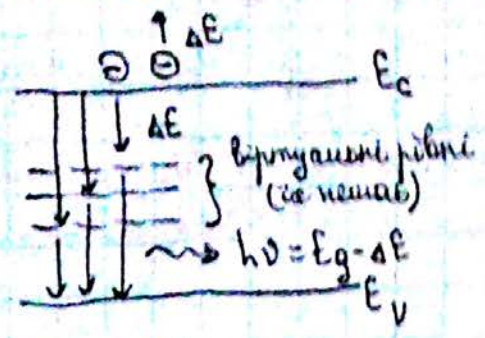 ΔE
⊖ ⊖
E_c
ΔE
віртуальні рівні
(їх немає)
hν = E_g - ΔE
E_v